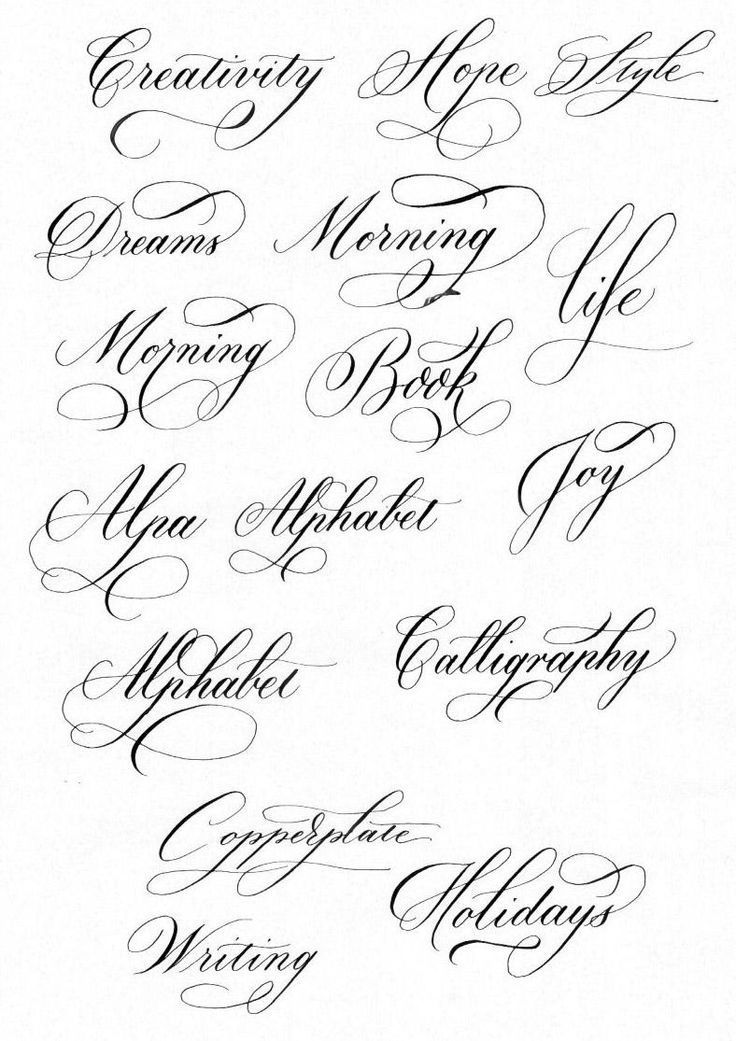 Creativity Hope Style
Dreams Morning life
Morning Book
Alpa Alphabet Joy
Alphabet Calligraphy
Copperplate
Holidays
Writing